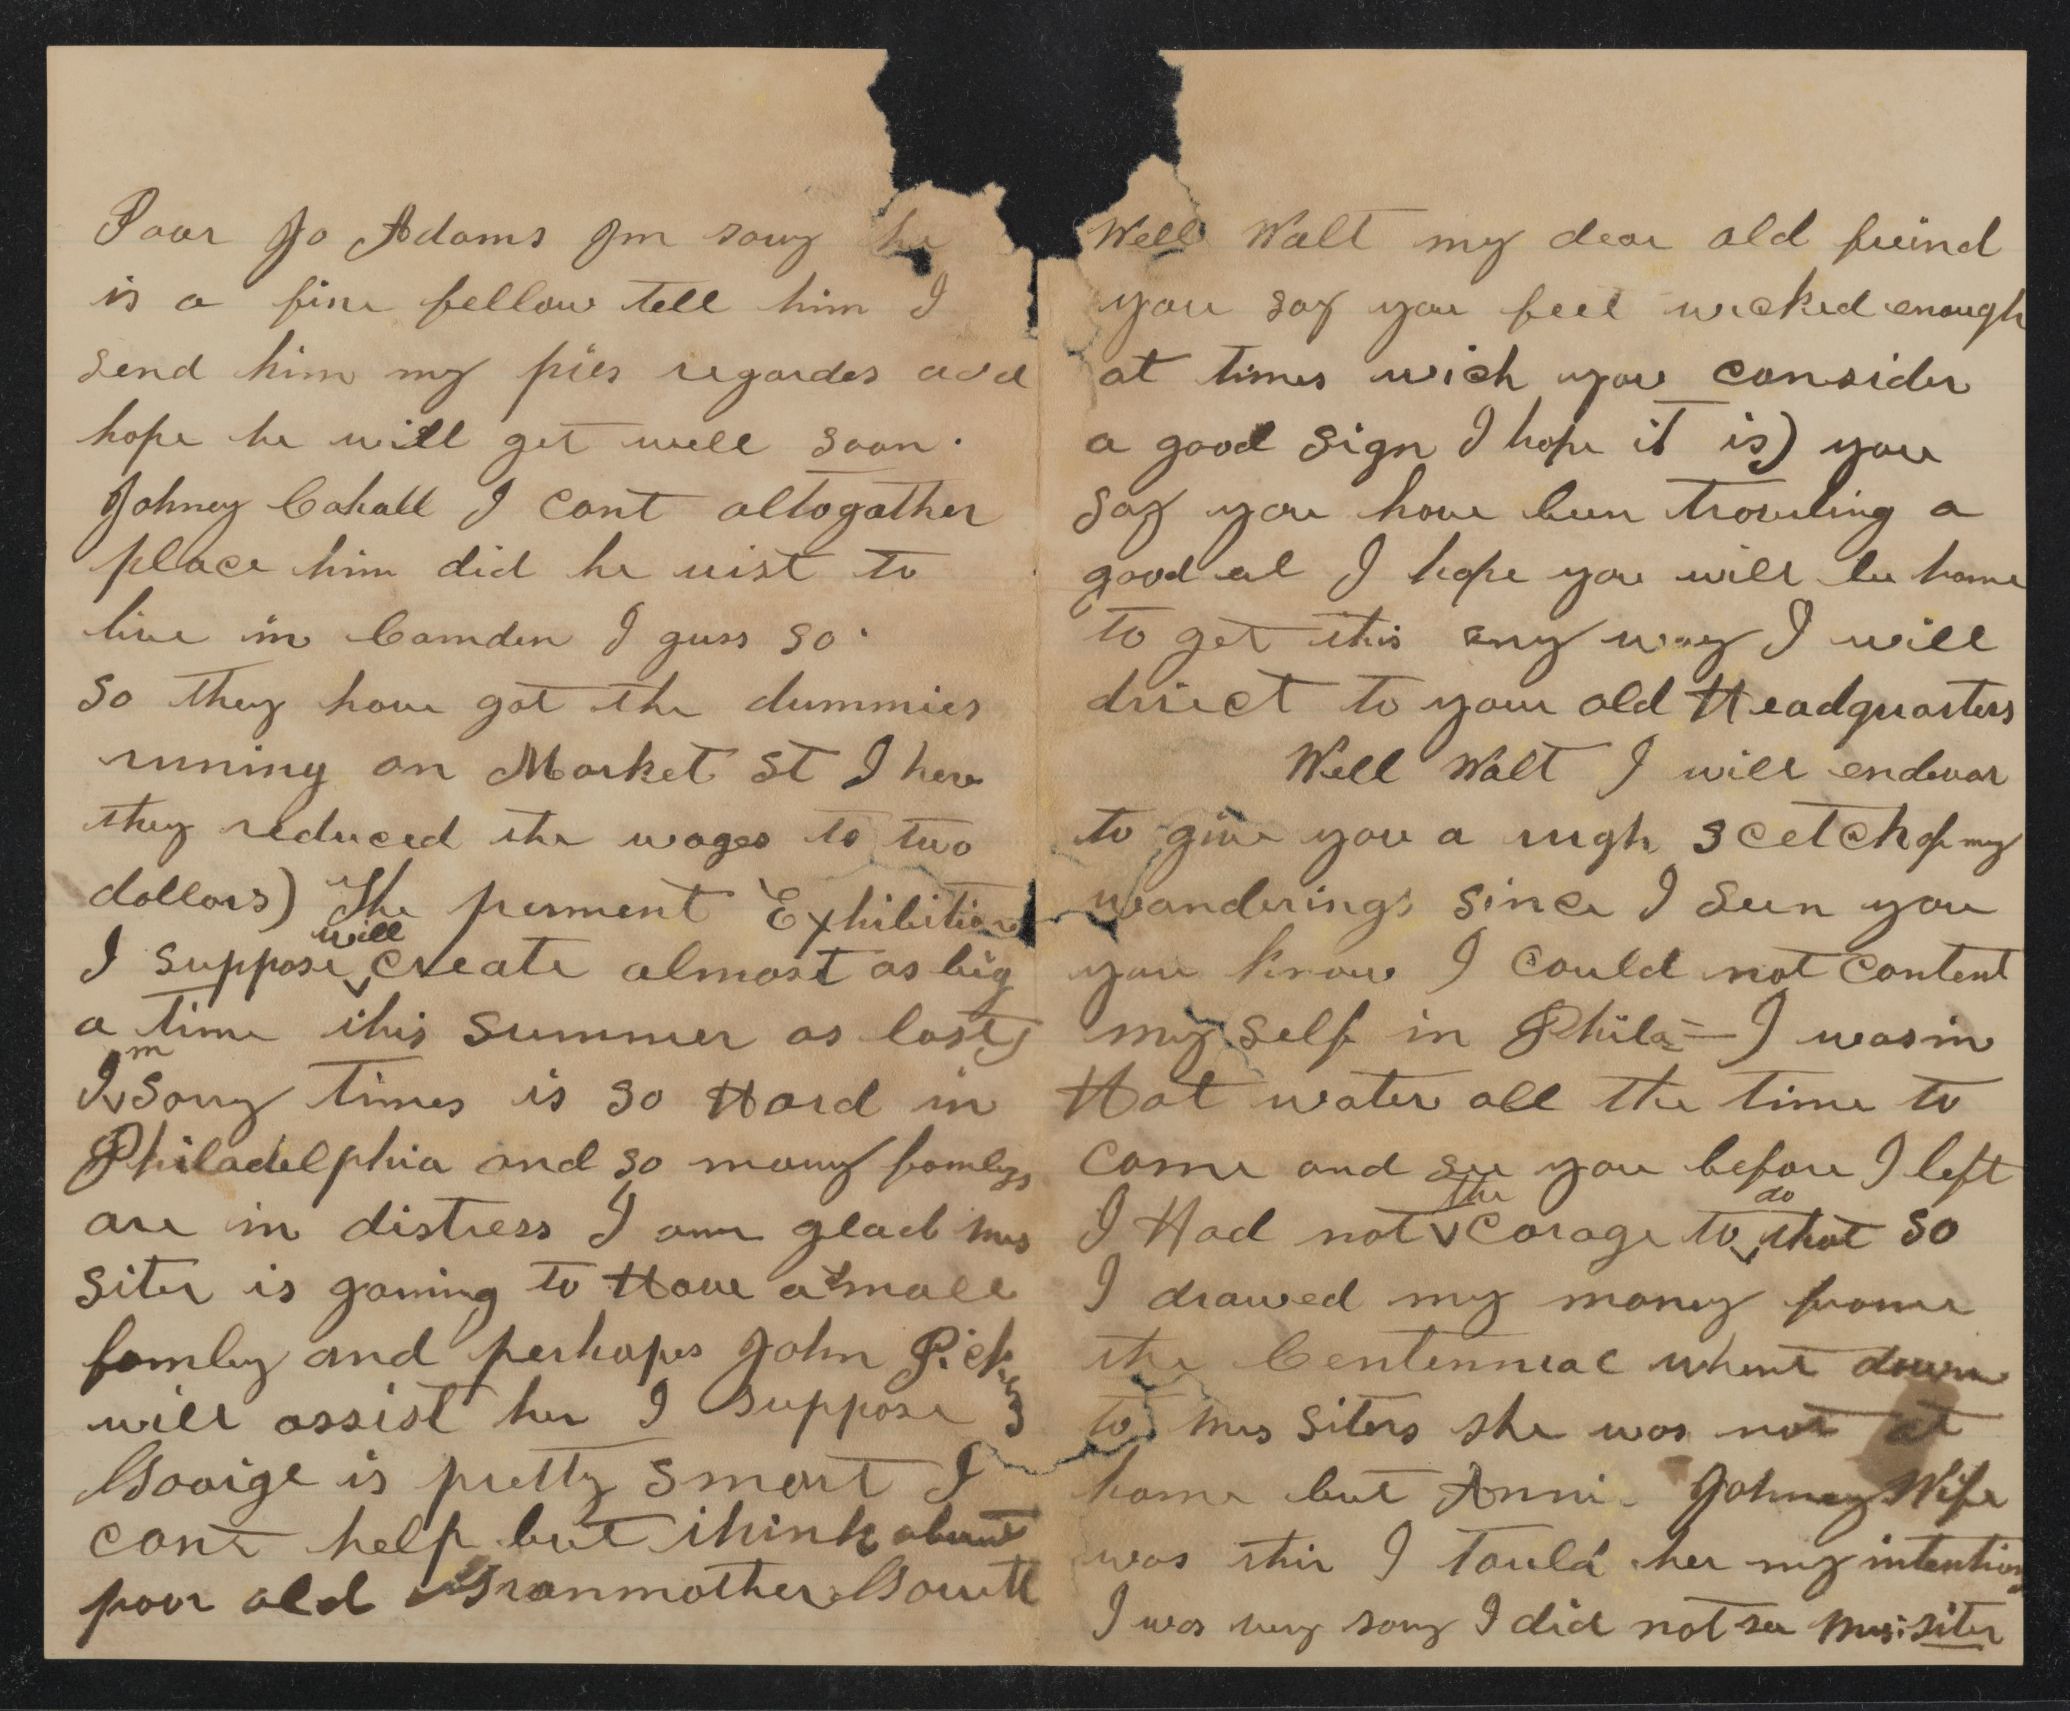 Poor Jo Adams Im sory he
is a fine fellow tell him I
send him my pies regardes and
hope he will get well soon.
Johney Cahall I cant altogather
place him did he uist to
live in Camden I guss so.
so they have got the dummies
runing on Market st I here
they reduced the wages to two
dollars) The perment Exhibition
I suppose will create almost as big
a time this summer as last)
Im sorry times is so Hard in
Philadelphia and so many famlys
are in distress I am glad mrs
siter is gaining to Have a small
famley and perhapes John Pickey
will assist her I suppose
Goorige is pretty smart I
cant help but think about
poor old Granmother
Well Walt my dear old freind
you say you feel wicked enough
at times wich you consider
a good sign I hope it is) you
say you have been traveling a
good eal I hope you will be home
to get this any way I will
driect to your old Headquarters
Well Walt I will endevor
to give you a rugh scetch of my
wanderings since I seen you
you know I could not content
my self in Phila= I was in
Hot water all the time to
come and see you before I left
I Had not the corage to do that so
I drawed my money frome
the Centennial whent down
to mrs siters she was not at
home but Anni - Johney Wife
was thir I tould her my intentions
I was very sory I did not see Mrs: siter